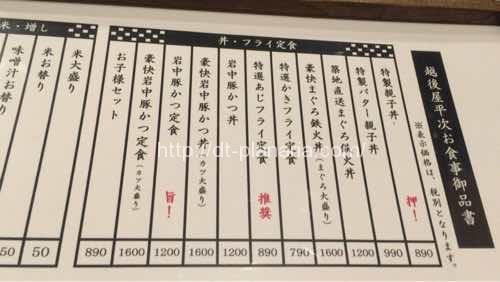 越後屋平次お食事御品書
※表示価格は、税別となります。
丼・フライ定食
特製親子丼 押! 890
特製バター親子丼 990
築地直送まぐろ鉄火丼 1200
豪快まぐろ鉄火丼(まぐろ大盛り) 1600
特選かきフライ定食 790
特選あじフライ定食 推奨 890
岩中豚かつ丼 1200
豪快岩中豚かつ丼(カツ大盛り) 1600
岩中豚かつ定食 旨! 1200
豪快岩中豚かつ定食(カツ大盛り) 1600
お子様セット 890
米・増し
米大盛り
米お替り 50
味噌汁お替り 50